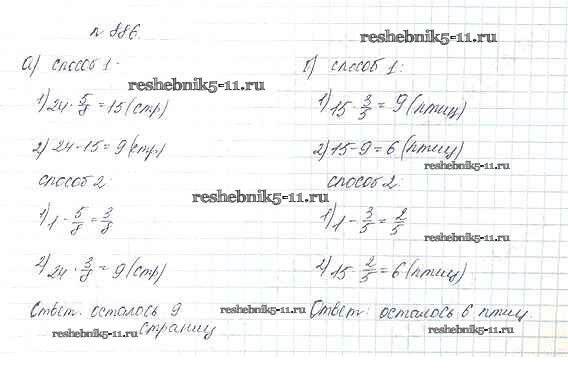 № 886.
reshebnik5-11.ru
а) способ 1.
reshebnik5-11.ru
1) 24 · 5/8 = 15 (стр)
2) 24 - 15 = 9 (стр)
способ 2.
reshebnik5-11.ru
1) 1 - 5/8 = 3/8
2) 24 · 3/8 = 9 (стр)
Ответ. осталось 9
страниц
reshebnik5-11.ru
reshebnik5-11.ru
б) способ 1:
1) 15 · 3/5 = 9 (птиц)
2) 15 - 9 = 6 (птиц)
reshebnik5-11.ru
способ 2.
1) 1 - 3/5 = 2/5
reshebnik5-11.ru
2) 15 · 2/5 = 6 (птиц)
Ответ: осталось 6 птиц.
reshebnik5-11.ru